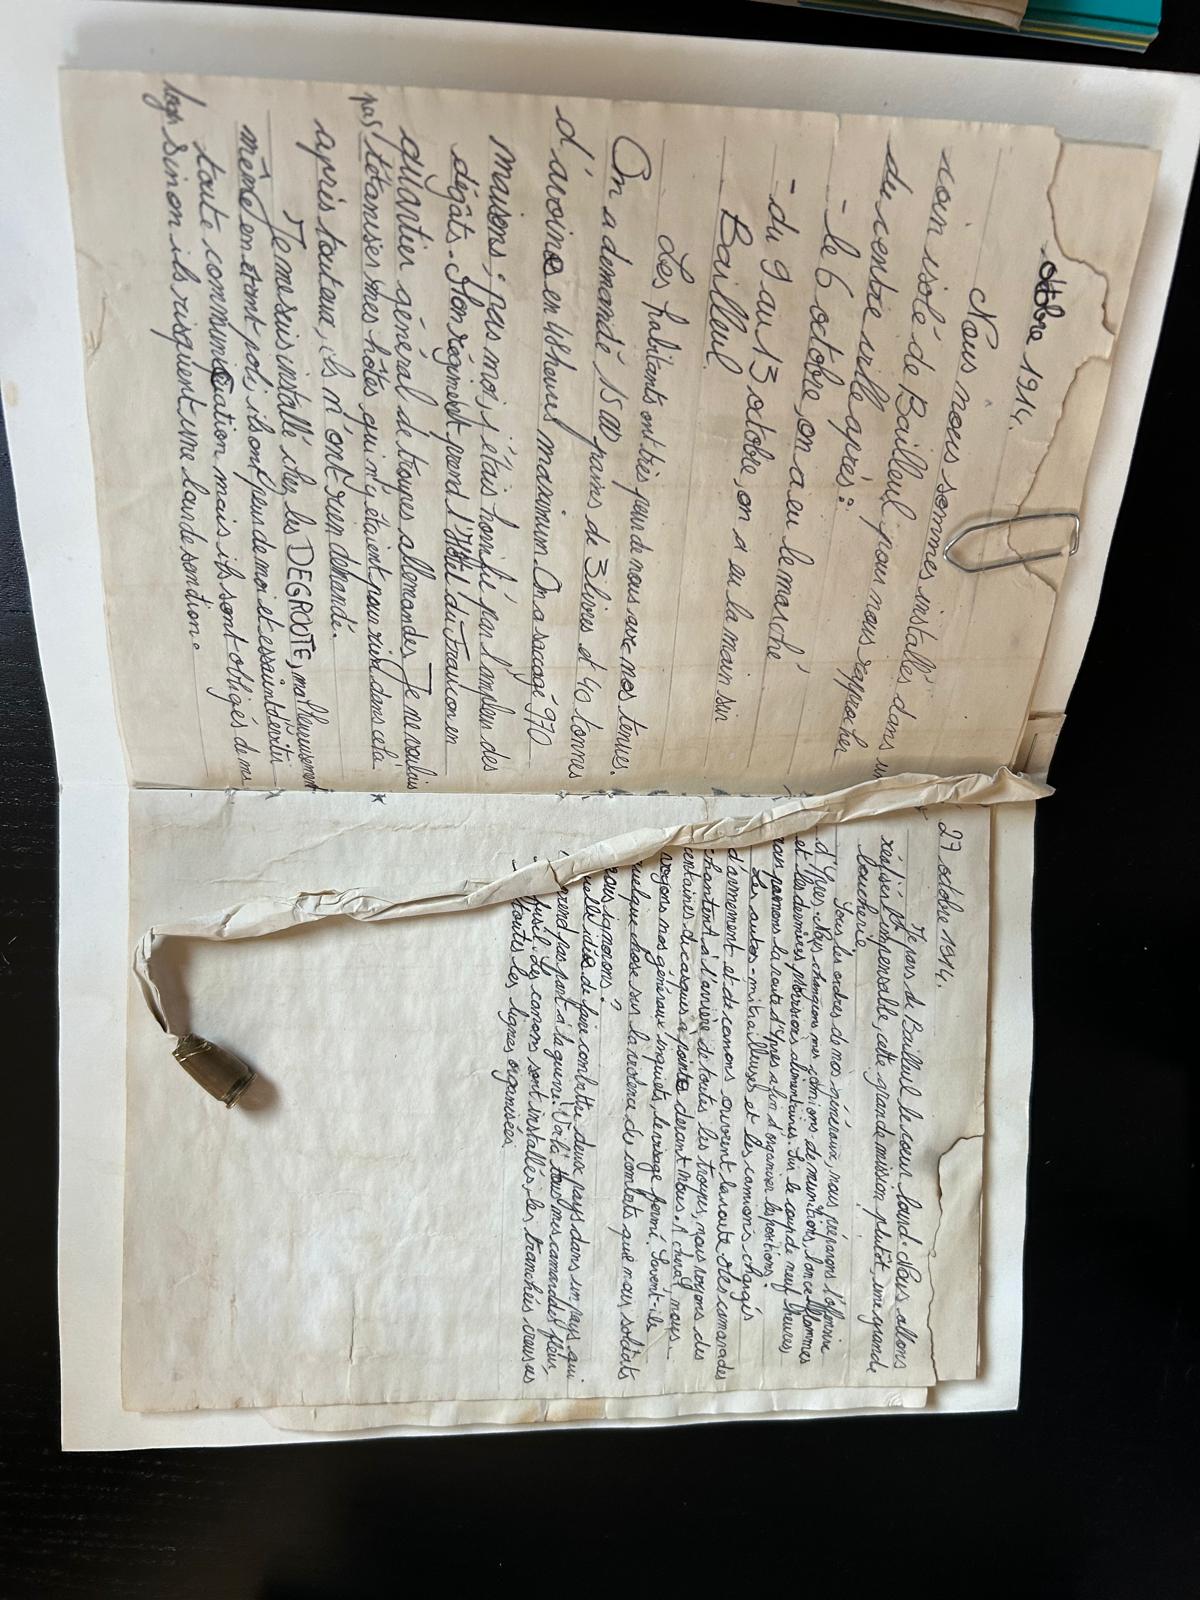 octobre 1914.
Nous nous sommes installés dans un
coin isolé de Bailleul pour nous rapprocher
du centre ville après :
- le 6 octobre, on a eu le marché
- du 9 au 13 octobre, on a eu la main sur
Bailleul.
Les habitants ont très peur de nous avec nos tenues.
On a demandé 1500 paires de 3 livres et 40 tonnes
d'avoine en 48 heures maximum. On a saccagé 970
maisons; pas moi, j'étais horrifié par l'ampleur des
dégâts. Mon régiment prend l'Hôtel du Faucon en
quartier général de troupes allemandes. Je ne voulais
pas tétanisés mes hôtes qui n'y étaient pour rien dans cela
après tout eux, ils n'ont rien demandé.
Je me suis installé chez les DEGROOTE, malheureusement
même en étant poli, ils ont peur de moi et essaient d'éviter
toute communication mais ils sont obligés de me
loger sinon ils risquent une lourde sanction.
27 octobre 1914.
Je pars de Bailleul le cœur lourd. Nous allons
réaliser l'impensable, cette grande mission plutôt, une grande
boucherie.
Sous les ordres de nos généraux, nous préparons l'offensive
d'Ypres. Nous chargeons nos camions de munitions, lance flammes
et les dernières provisions alimentaires. Sur le coup de neuf heures,
nous prenons la route d'Ypres afin d'organiser les positions.
Les autos-mitrailleuses et les camions chargés
d'armement et de canons ouvrent la route. Les camarades
chantent à l'arrière de toutes les troupes, nous voyons des
centaines de casques à pointe devant nous. A cheval, nous
voyons nos généraux inquiets, le visage fermé. Savent-ils
quelque chose sur la violence des combats que nous soldats
nous ignorons ?
idée de faire combattre deux pays dans un pays qui
prend pas part à la guerre. Voilà tous mes camarades fleur,
fusil. Les canons sont installés, les tranchées creusées
toutes les lignes organisées.